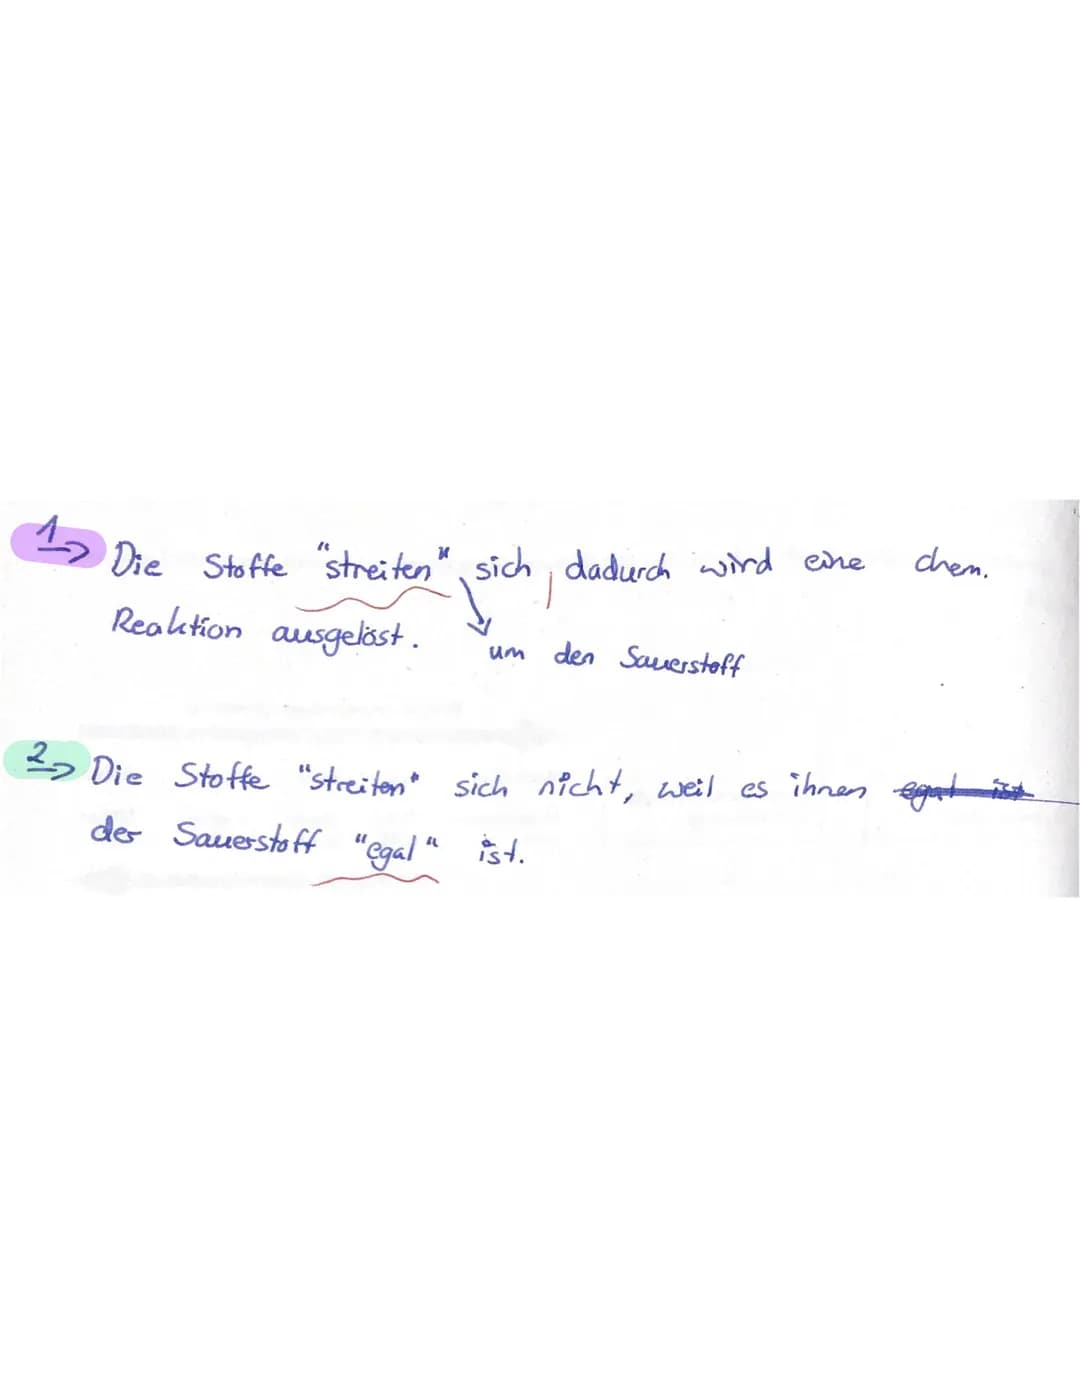 1→ Die Stoffe "streiten" sich, dadurch wird eine chem.
Reaktion ausgelöst.
um den Sauerstoff
2→ Die Stoffe "streiten" sich nicht, weil es ihnen egal ist
der Sauerstoff "egal" ist.